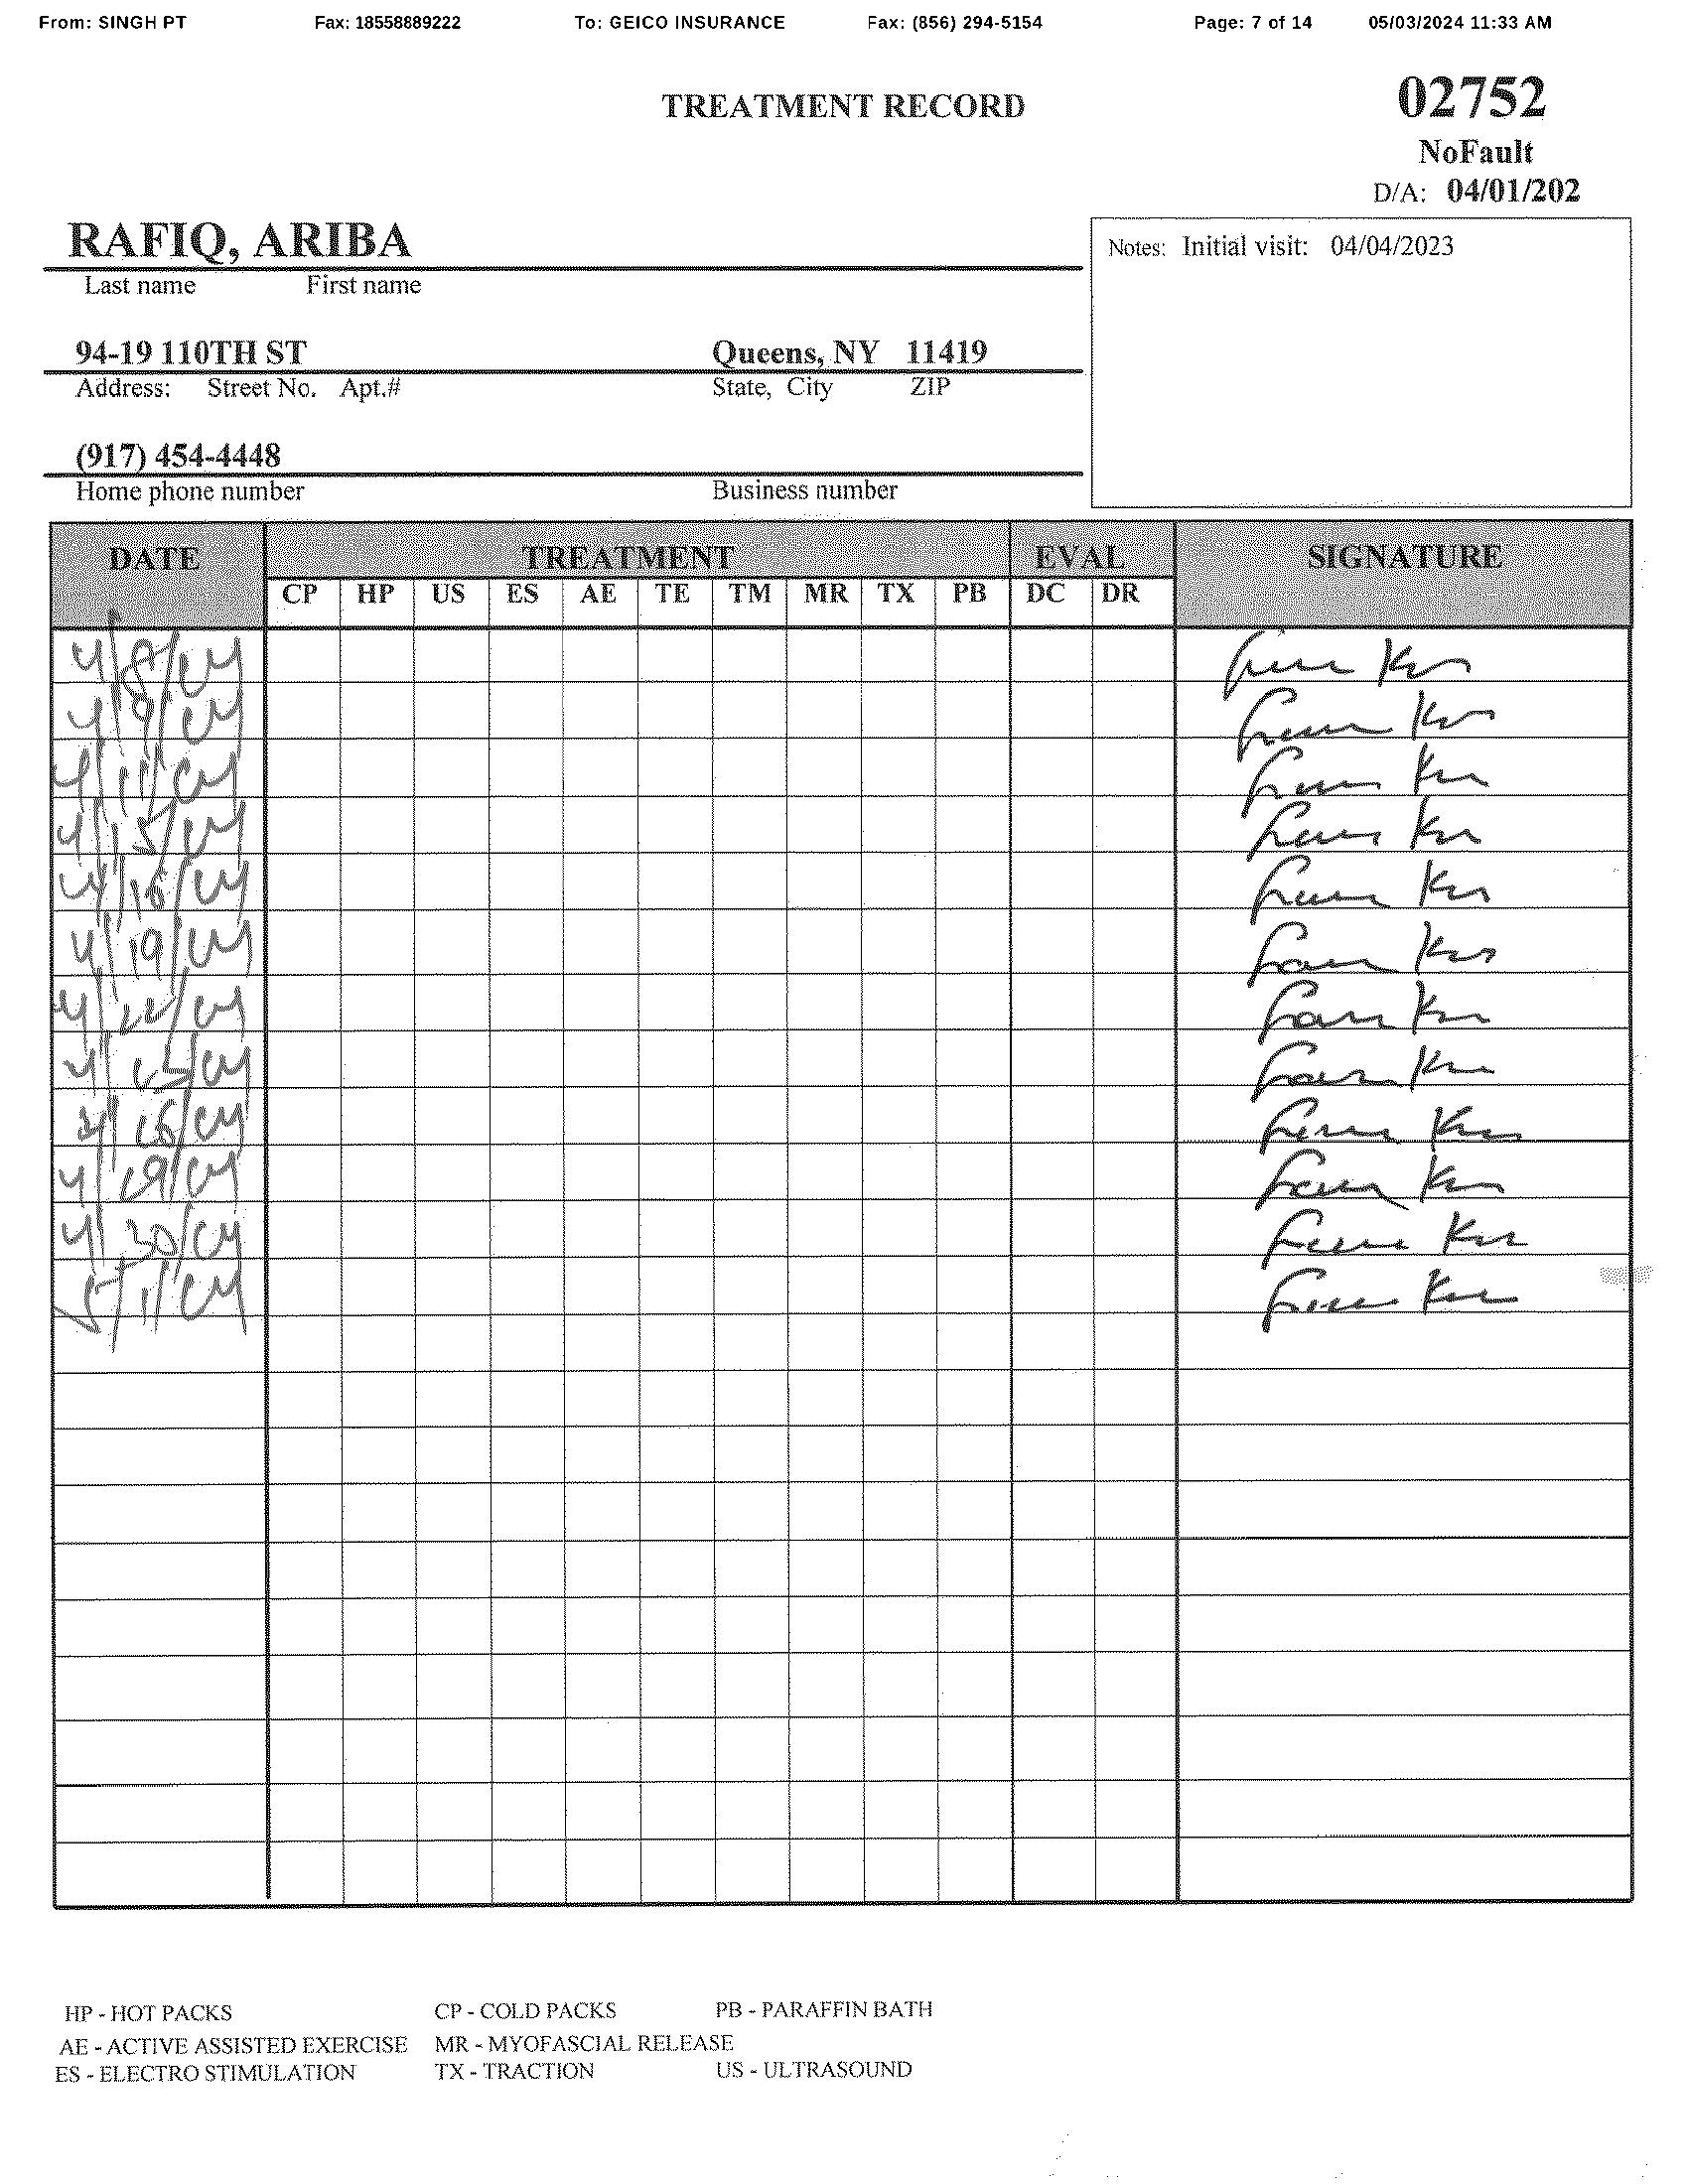 From: SINGH PT Fax: 18558889222 To: GEICO INSURANCE Fax: (856) 294-5154 Page: 7 of 14 05/03/2024 11:33 AM
TREATMENT RECORD
02752
NoFault
D/A: 04/01/202
RAFIQ, ARIBA
Last name First name
Notes: Initial visit: 04/04/2023
94-19 110TH ST Queens, NY 11419
Address: Street No. Apt.# State, City ZIP
(917) 454-4448
Home phone number Business number
DATE TREATMENT EVAL SIGNATURE
CP HP US ES AE TE TM MR TX PB DC DR
4/8/24
4/9/24
4/11/24
4/15/24
4/16/24
4/19/24
4/22/24
4/25/24
4/26/24
4/29/24
4/30/24
5/1/24
HP - HOT PACKS CP - COLD PACKS PB - PARAFFIN BATH
AE - ACTIVE ASSISTED EXERCISE MR - MYOFASCIAL RELEASE
ES - ELECTRO STIMULATION TX - TRACTION US - ULTRASOUND